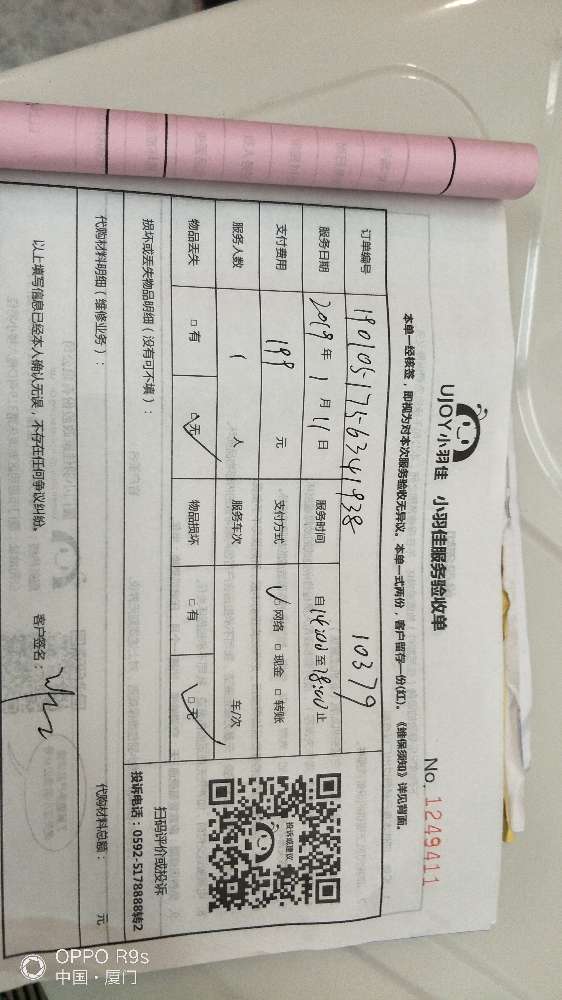 UJOY小羽佳 小羽佳服务验收单
No. 1249411
本单一经核签，即视为对本次服务验收无异议。本单一式两份，客户留存一份(红)。《维保须知》详见背面。
订单编号 190105-175-6341938 10379
服务日期 2019年1月11日 服务时间 自14:00至18:00止
支付费用 199 元 支付方式 √网络 □现金 □转账
服务人数 1 人 服务车次 车/次
物品丢失 □有 □无√ 物品损坏 □有 □无√
投诉或建议
扫码评价或投诉
投诉电话：0592-5178888转2
损坏或丢失物品明细（没有可不填）：
代购材料明细（维修业务）： 代购材料总额： 元
以上填写信息已经本人确认无误，不存在任何争议纠纷。 客户签名：
OPPO R9s
中国·厦门